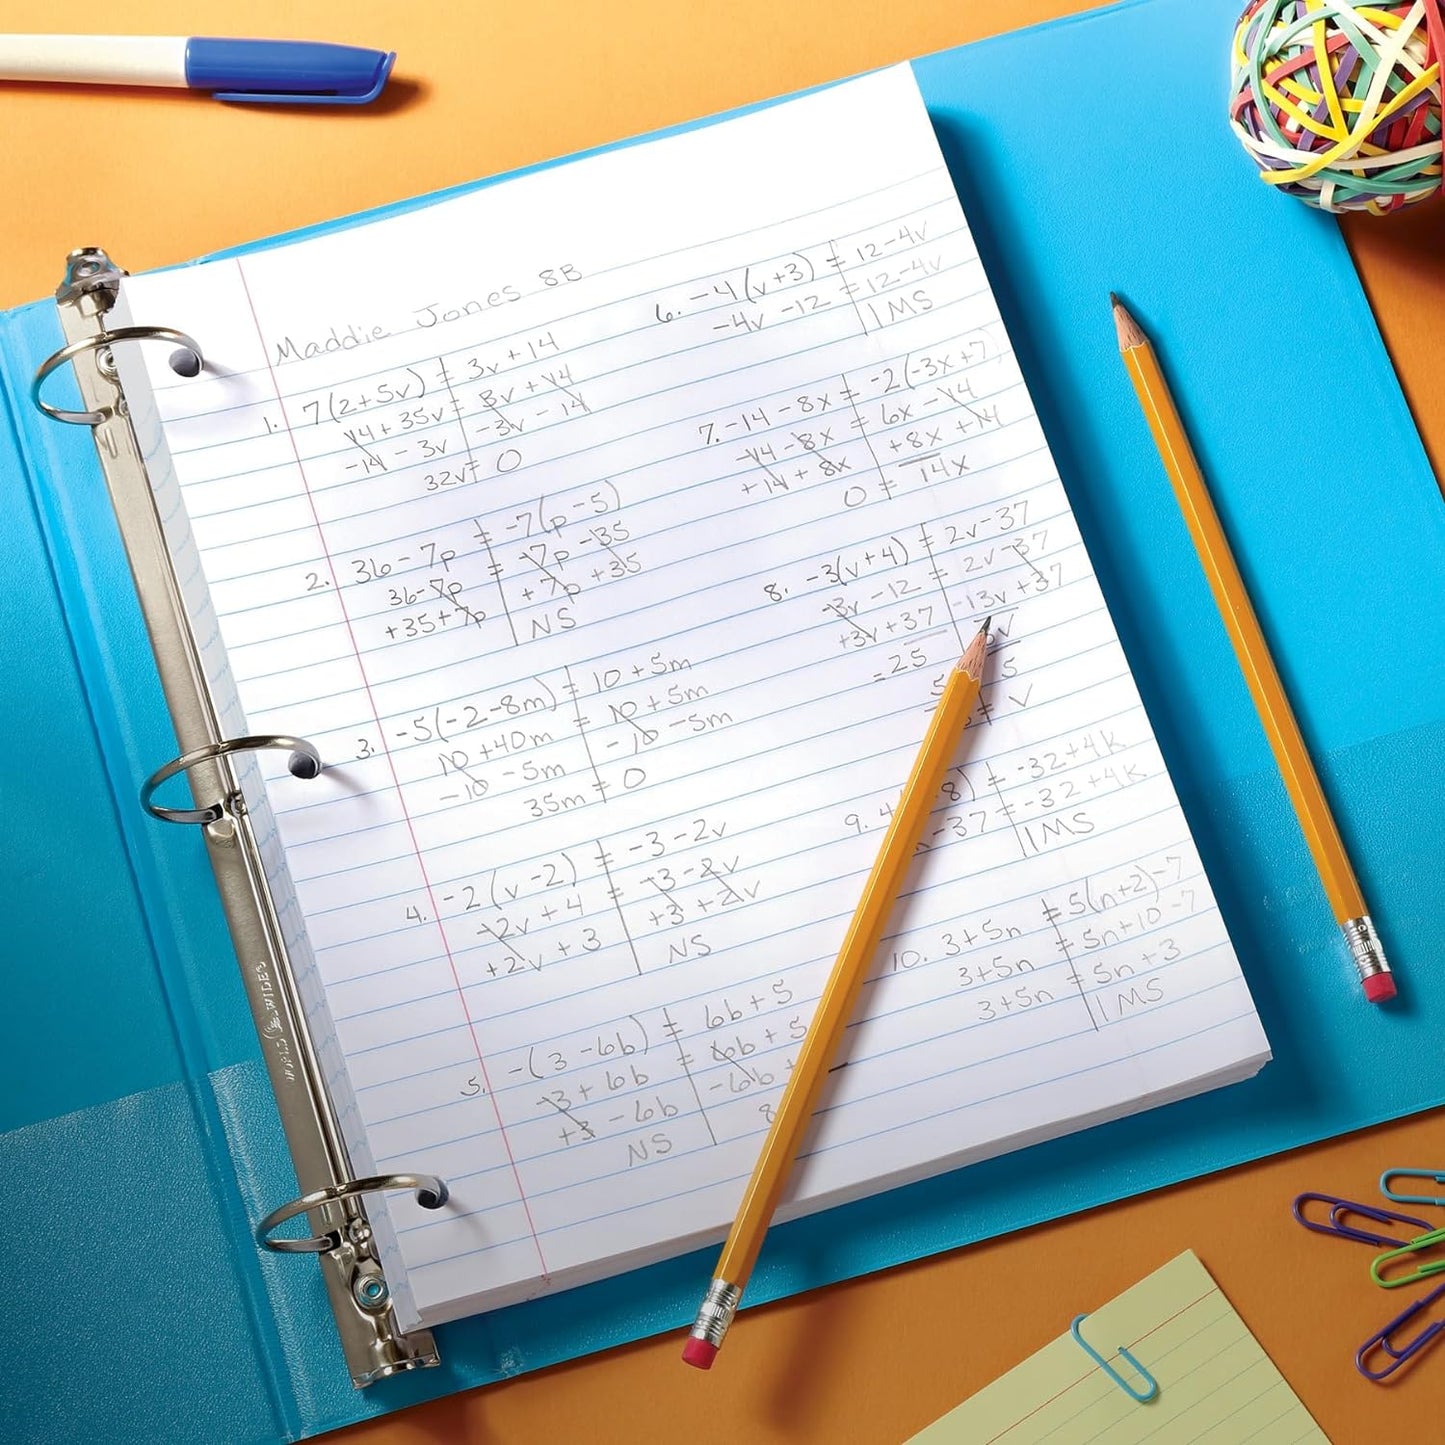 Maddie Jones 8B
1. 7(2+5v) = 3v+14
14+35v = 3v+14
-14-3v -3v-14
32v = 0
2. 36-7p = -7(p-5)
36-7p = -7p-35
+35+7p +7p+35
NS
3. -5(-2-8m) = 10+5m
10+40m = 10+5m
-10-5m -10-5m
35m = 0
4. -2(v-2) = -3-2v
-2v+4 = -3-2v
+2v+3 +3+2v
NS
5. -(3-6b) = 6b+5
-3+6b = 6b+5
+3-6b -6b+
NS 8
6. -4(v+3) = 12-4v
-4v-12 = 12-4v
IMS
7. -14-8x = -2(-3x+7)
-14-8x = 6x-14
+14+8x +8x+14
0 = 14x
8. -3(v+4) = 2v-37
-3v-12 = 2v-37
+3v+37 -13v+37
=25 5v
5 5
= v
9. 4 8) = -32+4k
-37 = -32+4k
IMS
10. 3+5n = 5(n+2)-7
3+5n = 5n+10-7
3+5n = 5n+3
IMS
WORLD WIDE